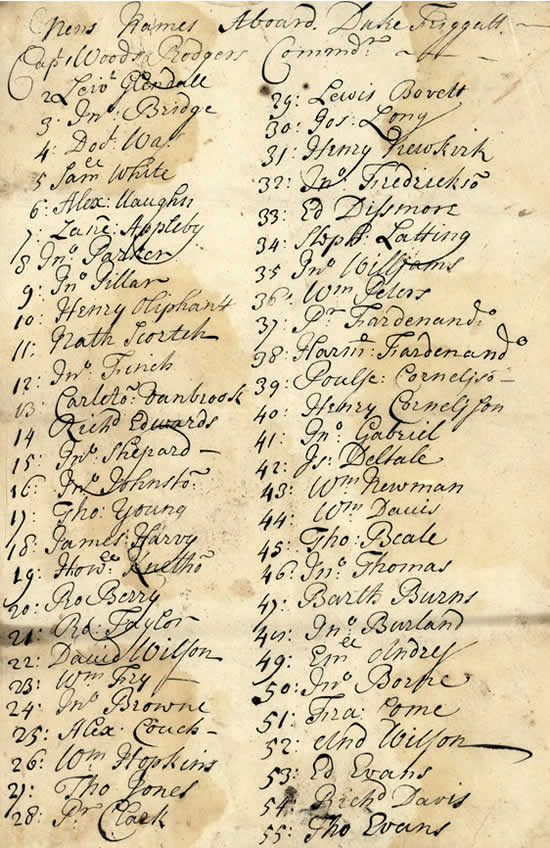 Mens Names Aboard Duke Friggatt.
Capt Woods Rodgers Commdr
2 Leivt Glendall
3: Jno: Bridge
4: Doct. Was
5 Samll White
6: Alex: Vaughn
7: Appleby
8 Jno: Parker
9: Jno Pillar
10: Henry Oliphant
11: Nath Scorteh
12: Jno: Finch
13: Carleton: Vanbrook
14 Richd Edwards
15: Jno: Shepard
16: Jno Johnsto
17: Tho: Young
18: James: Harvy
19: Howll
20: Ro Berry
21: Ro: Taylor
22: David Wilson
23: Wm Fry
24: Jno Browne
25: Alex: Couch
26: Wm Hopkins
27: Tho Jones
28: Pr Clark
29: Lewis Bovett
30: Jos: Long
31: Henry Newkirk
32: Jno: Frederickso
33: Ed Dissmore
34: Steph: Latting
35 Jno Williams
36: Wm Peters
37: Pr Fardenando
38: Harm: Fardenando
39: Poulse: Cornelso
40: Henry Cornelsson
41: Jno: Gabriel
42: Js: Deltale
43: Wm Newman
44: Wm Davis
45: Tho: Beale
46: Jno: Thomas
47: Barth Burns
48: Jno: Burland
49: Emll Andrey
50: Jno: Borne
51: Fra: Come
52: And Wilson
53: Ed Evans
54: Richd Davis
55: Tho Evans